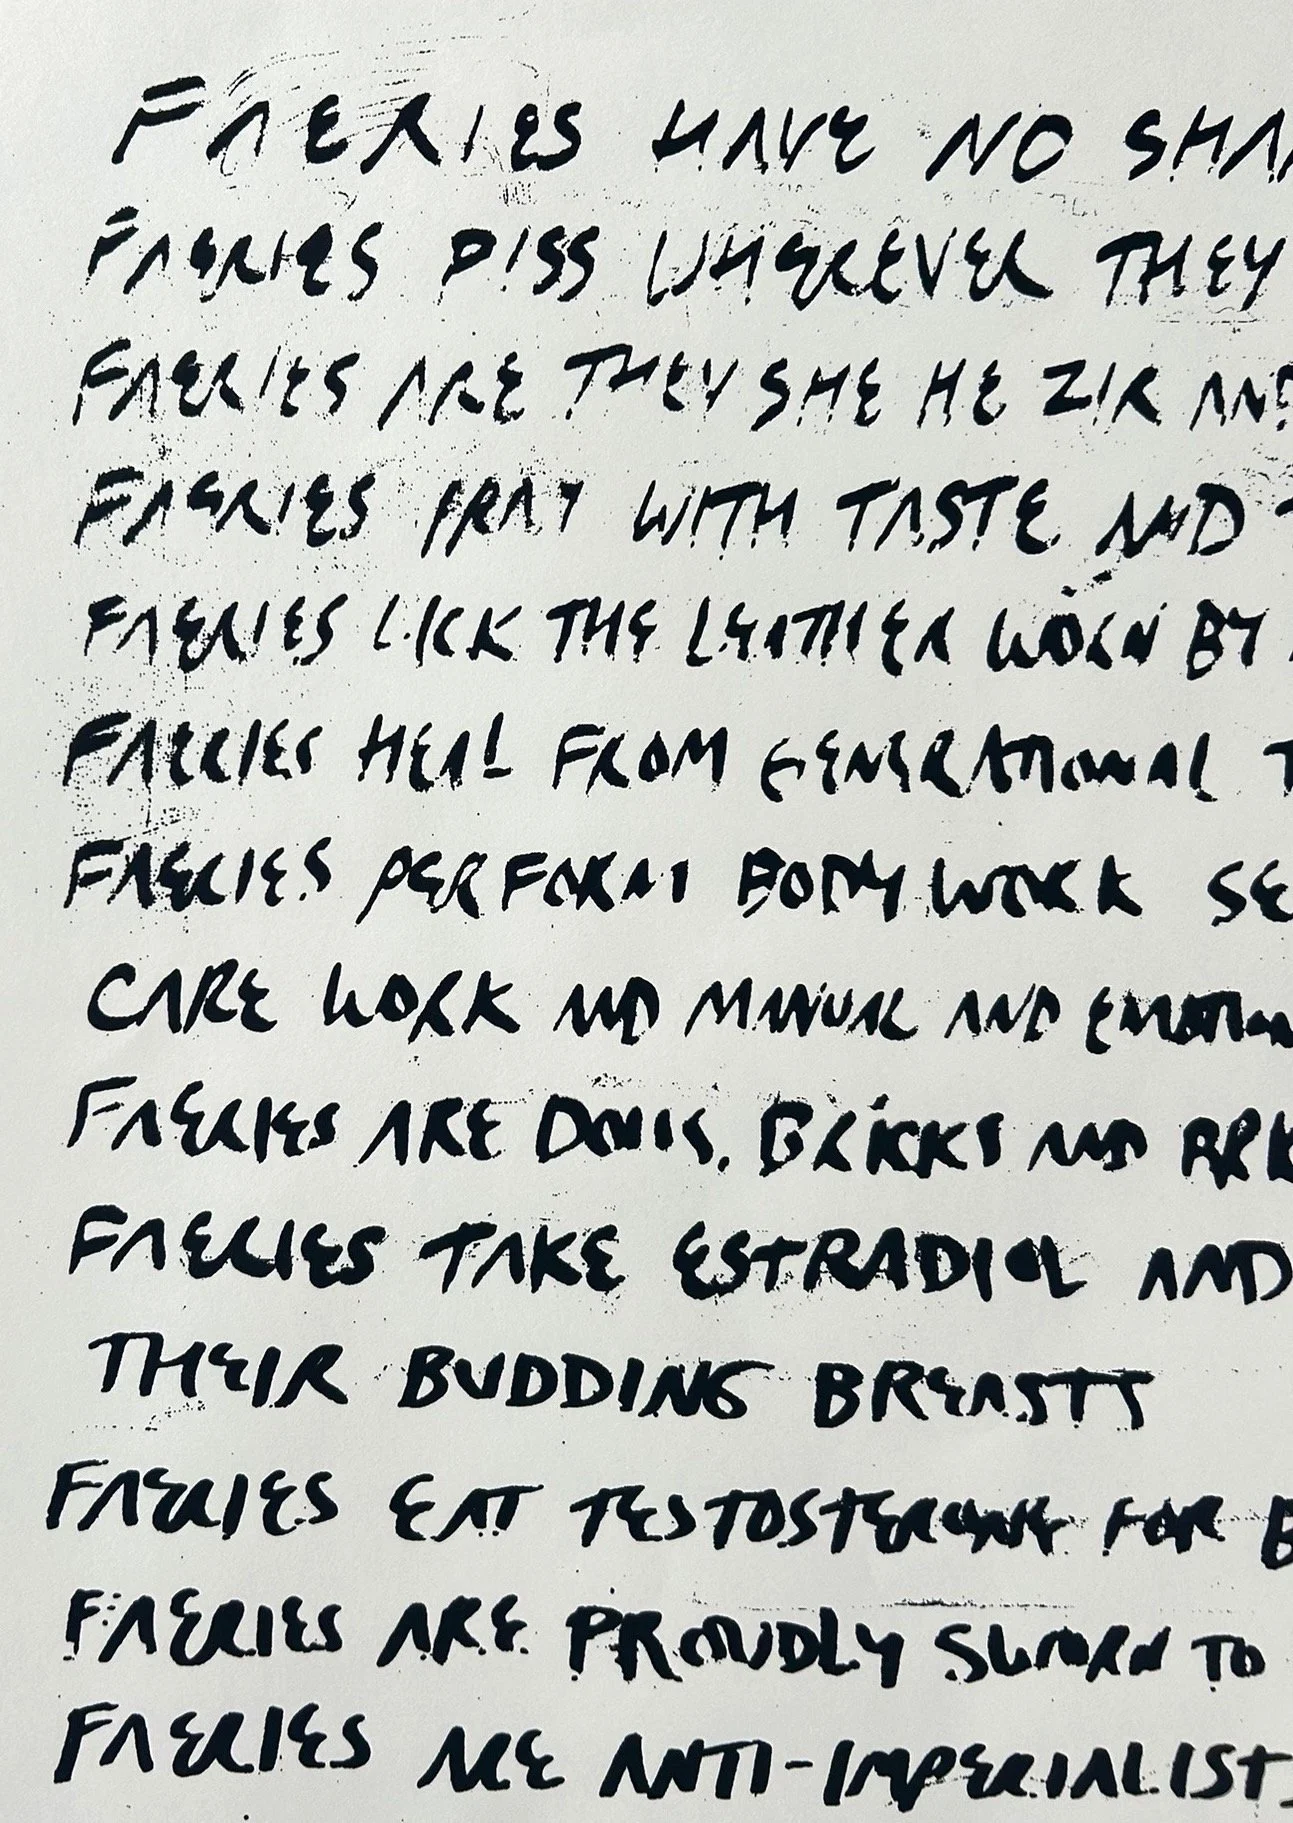 FAERIES HAVE NO SHA
FAERIES PISS WHEREVER THEY
FAERIES ARE THEY SHE HE ZIR AND
FAERIES PRAY WITH TASTE AND T
FAERIES LICK THE LEATHER WORN BY
FAERIES HEAL FROM GENERATIONAL T
FAERIES PERFORM BODY WORK SE
CARE WORK AND MANUAL AND EMOTION
FAERIES ARE BRICKS AND
FAERIES TAKE ESTRADIOL AND
THEIR BUDDING BREASTS
FAERIES EAT TESTOSTERONE FOR B
FAERIES ARE PROUDLY SWORN TO
FAERIES ARE ANTI-IMPERIALIST